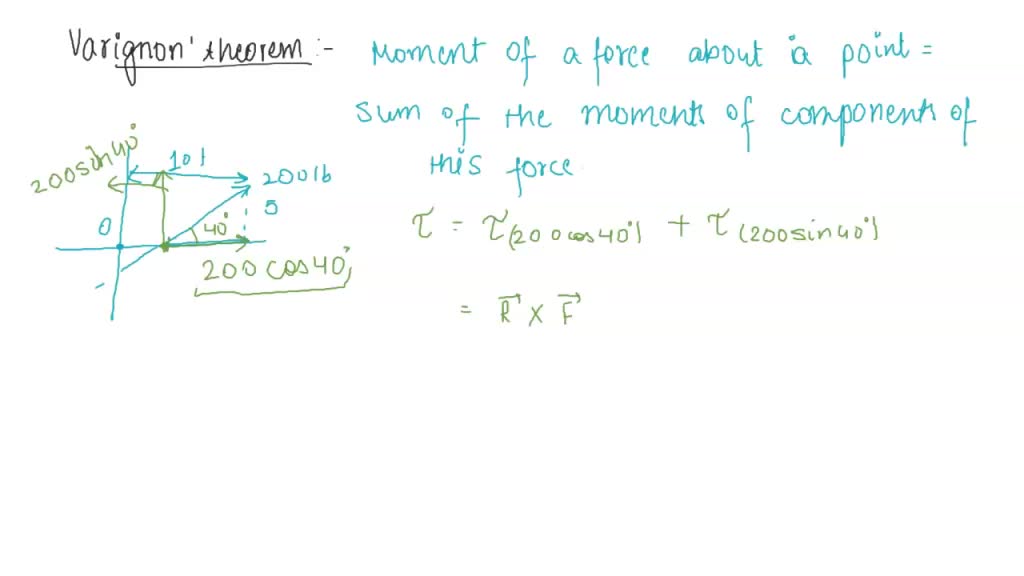 Varignon' theorem :- Moment of a force about a point =
sum of the moments of components of
this force
200sin40°
10
200lb
5
0
40°
200 cos40°
τ = τ(200cos40°) + τ(200sin40°)
= R⃗ × F⃗